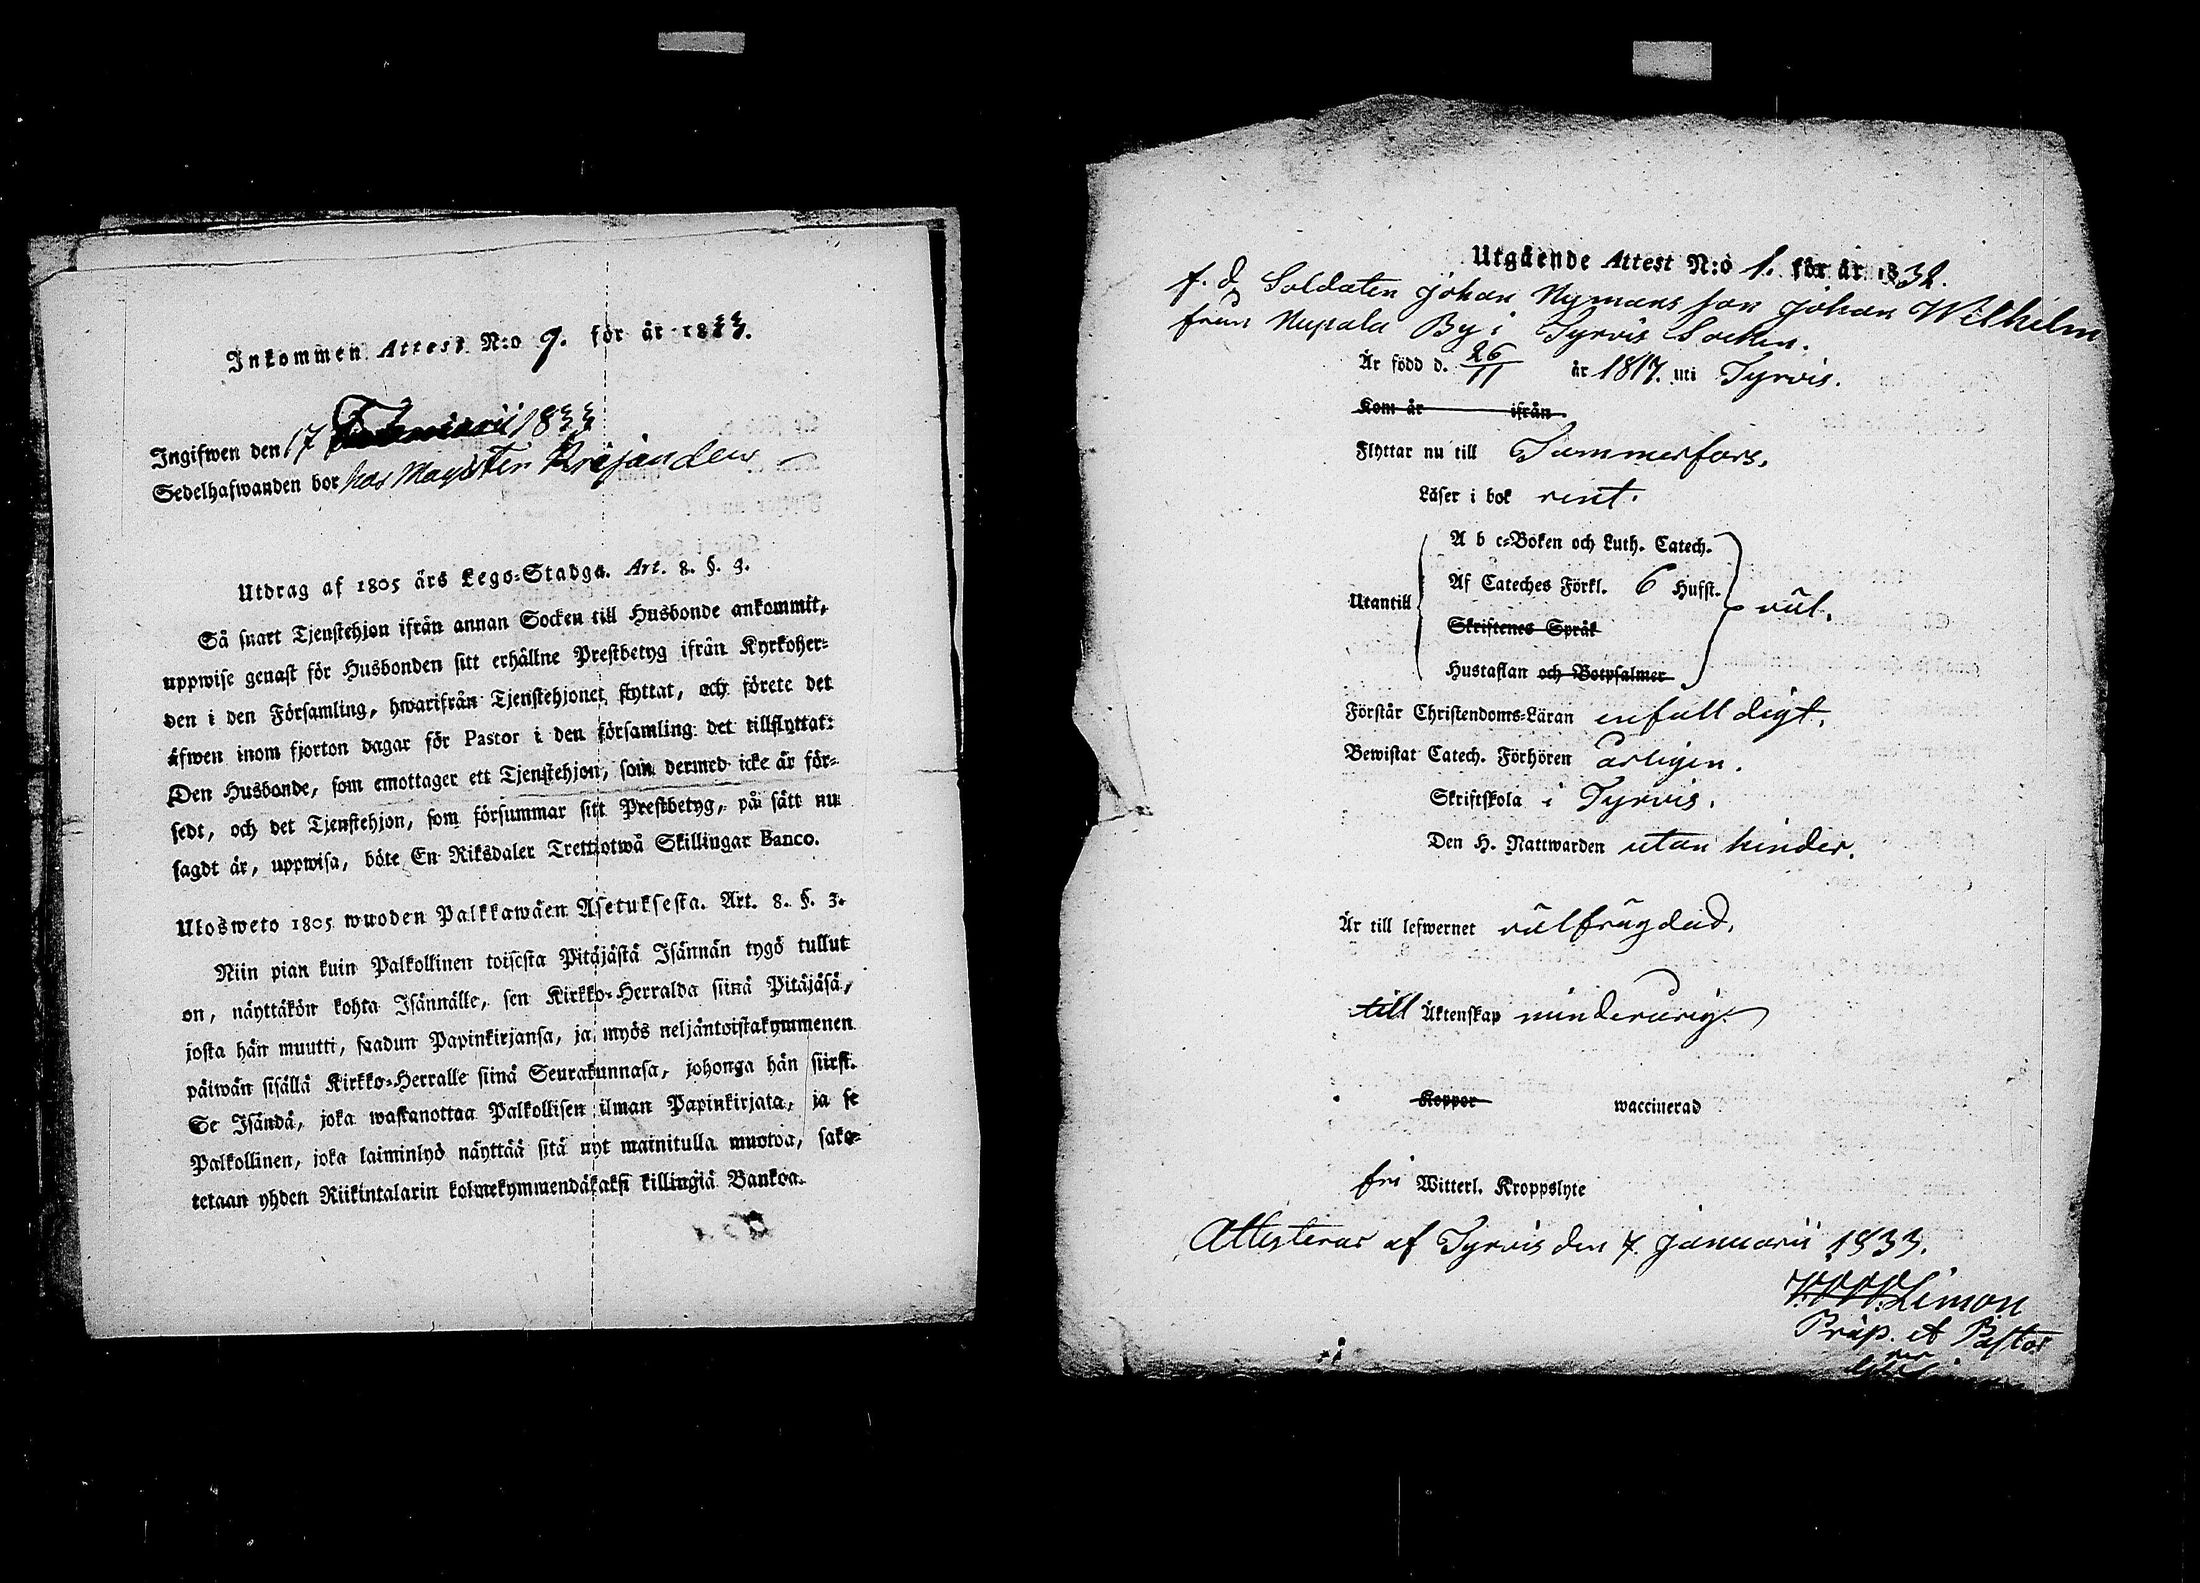 Inkommen Attest N:o 9. för år 1833.
Ingifwen den 17 1833
Sedelhafwanden bor hos Magister
Utdrag af 1805 års Lego-Stadga. Art. 8. §. 3.
Så snart Tjenstehjon ifrån annan Socken till Husbonde ankommit,
uppwise genast för Husbonden sitt erhållne Prestbetyg ifrån Kyrkoher-
den i den Församling, hwarifrån Tjenstehjonet flyttat, och förete det
äfwen inom fjorton dagar för Pastor i den församling det tillflyttat:
Den Husbonde, som emottager ett Tjenstehjon, som dermed icke är för-
sedt, och det Tjenstehjon, som försummar sitt Prestbetyg, på sätt nu
sagdt är, uppwisa, böte En Riksdaler Trettiotwå Skillingar Banco.
Ulosweto 1805 wuoden Palkkawäen Asetuksesta. Art. 8. §. 3.
Niin pian kuin Palkollinen toisesta Pitäjästä Isännän tygö tullut
on, näyttäkön kohta Isännälle, sen Kirkko-Herralda siinä Pitäjäsä,
josta hän muutti, saadun Papinkirjansa, ja myös neljäntoistakymmenen
päiwän sisällä Kirkko-Herralle siinä Seurakunnasa, johonga hän siirsi.
Se Isändä, joka wastanottaa Palkollisen ilman Papinkirjata, ja se
Palkollinen, joka laiminlyö näyttää sitä nyt mainitulla muotoa, sako-
tetaan yhden Riikintalarin kolmekymmendäkaksi killingiä Bankoa.
Utgående Attest N:o 1. för år 1832.
f. d. Soldaten Johan Nymans son Johan Wilhelm
från Nupala By i Tyrvis Socken.
Är född d. 26/11 år 1817. uti Tyrvis.
Kom år ifrån
Flyttar nu till Tammerfors.
Läser i bok rent.
A b c-Boken och Luth. Catech.
Af Cateches Förkl. 6 Hufst.
Utantill väl.
Skriftenes Språk
Hustaflan och Botpsalmer
Förstår Christendoms-Läran enfalldigt.
Bewistat Catech. Förhören årligen.
Skriftskola i Tyrvis.
Den H. Nattwarden utan hinder.
Är till lefwernet välfrägdad.
till Äktenskap minderårig.
Koppor waccinerad
fri Witterl. Kroppslyte
Attesteras af Tyrvis den 7. Januarii 1833.
Limon
Präp. et Pastor